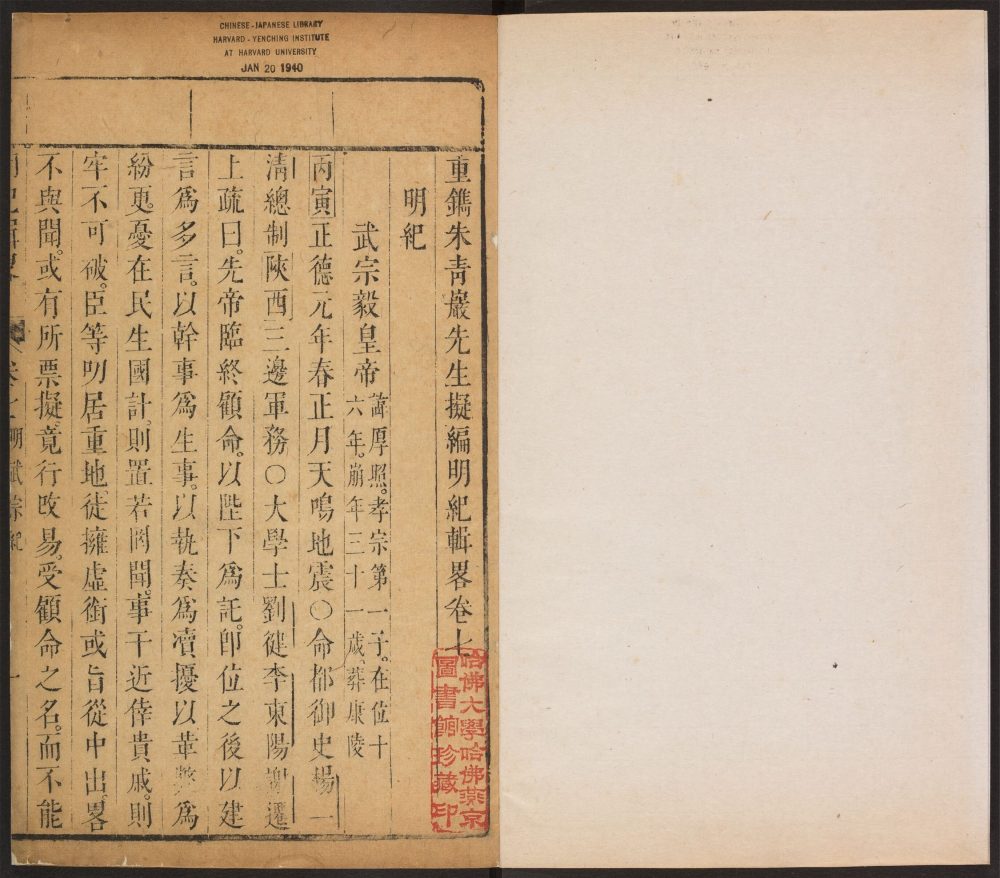 CHINESE-JAPANESE LIBRARY
HARVARD-YENCHING INSTITUTE
AT HARVARD UNIVERSITY
JAN 20 1940
重鐫朱青巖先生擬編明紀輯畧卷七
明紀
武宗毅皇帝諱厚照。孝宗第一子。在位十
六年。崩年三十一歲。葬康陵
丙寅正德元年春正月天鳴地震○命都御史楊一
淸總制陝西三邊軍務○大學士劉健李東陽謝遷
上疏曰。先帝臨終顧命。以陛下爲託。卽位之後以建
言爲多言。以幹事爲生事。以執奏爲瀆擾以革弊爲
紛更。憂在民生國計。則置若罔聞。事干近倖貴戚。則
牢不可破。臣等叨居重地。徒擁虛銜或旨從中出。畧
不與聞。或有所票擬。竟行改易。受顧命之名。而不能
明紀輯畧 卷七 明武宗紀 一
哈佛大學哈佛燕京
圖書館珍藏印